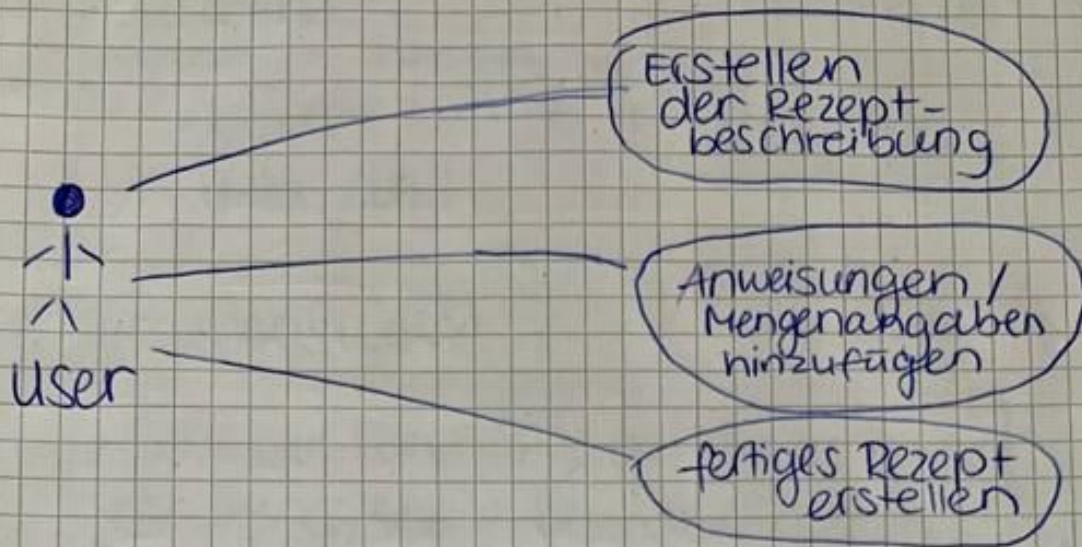 Erstellen
der Rezept-
beschreibung
Anweisungen /
Mengenangaben
hinzufügen
user
fertiges Rezept
erstellen